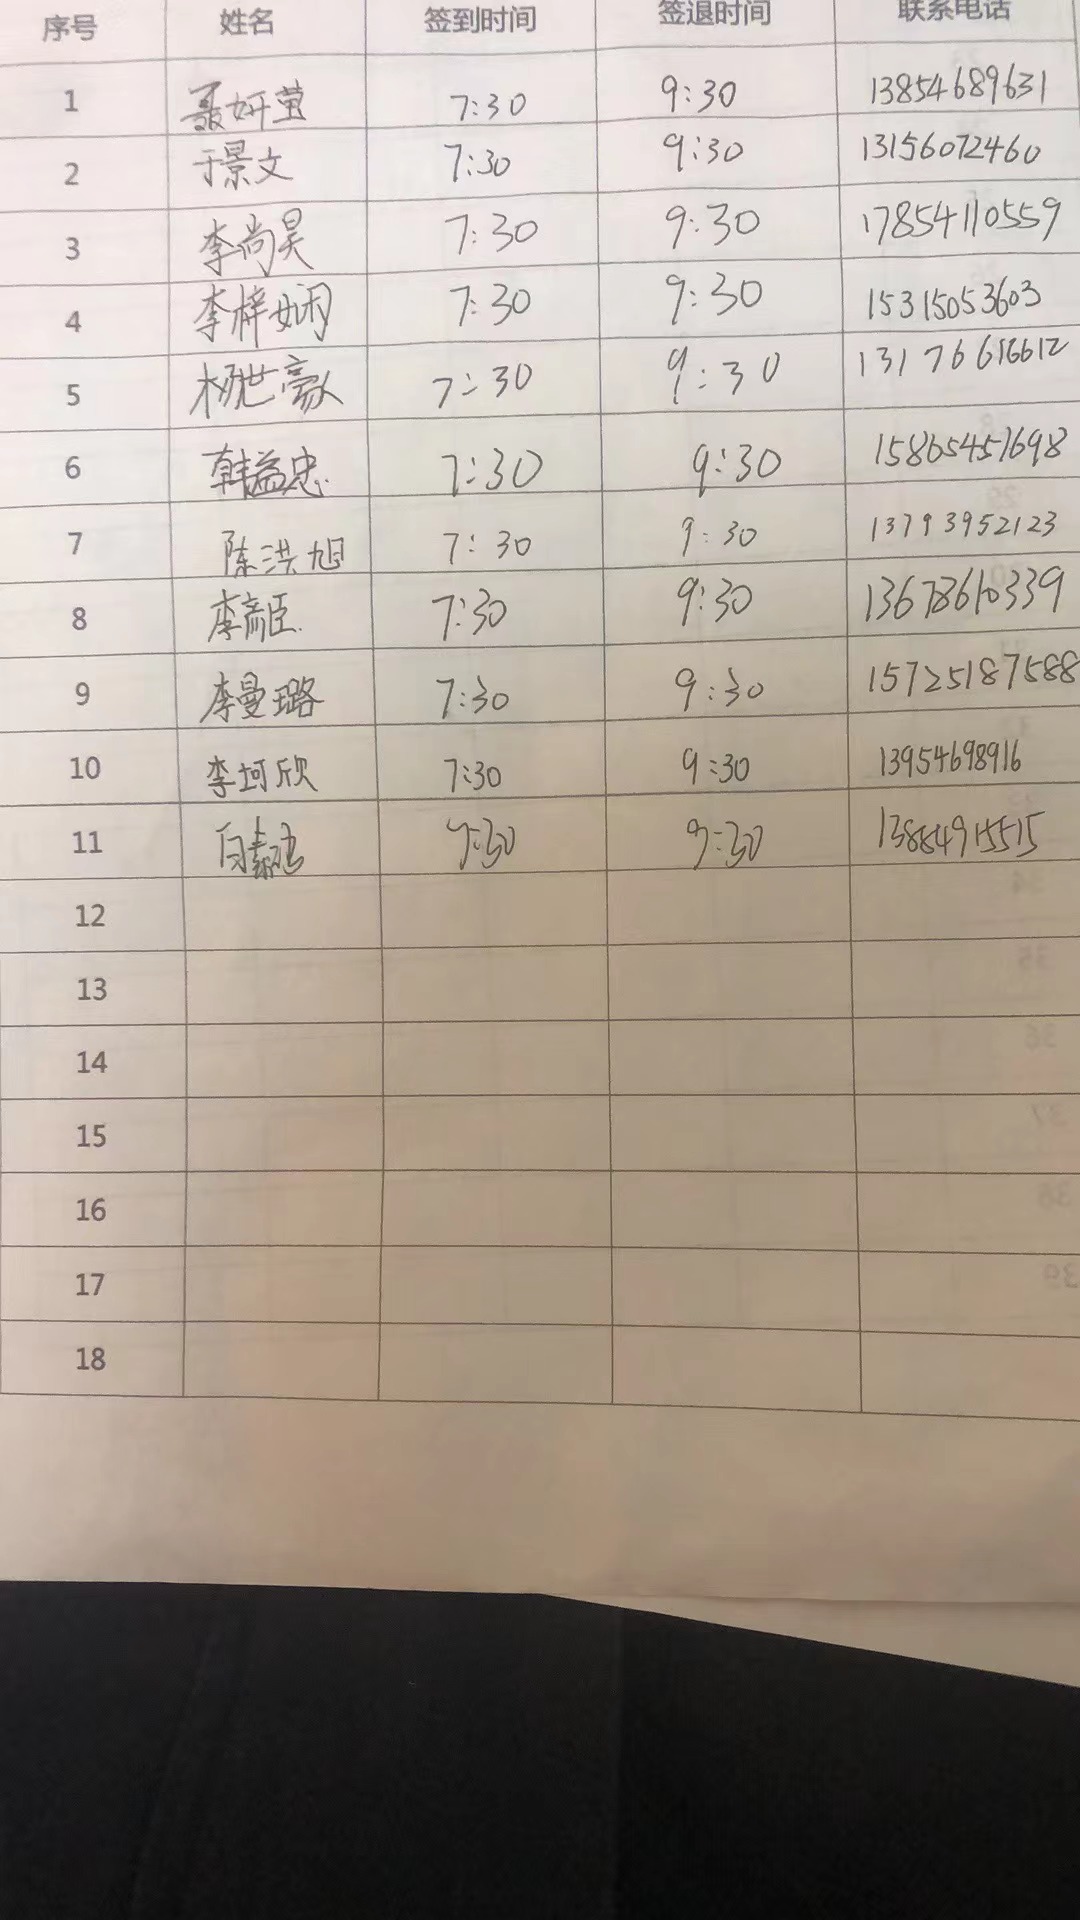 序号 姓名 签到时间 签退时间 联系电话
1 聂妍莹 7:30 9:30 13854689631
2 于景文 7:30 9:30 13156072460
3 李尚昊 7:30 9:30 17854110559
4 李梓娴 7:30 9:30 15315053603
5 杨世豪 7:30 9:30 13176616612
6 韩益忠 7:30 9:30 15865451698
7 陈洪旭 7:30 9:30 13793952123
8 李 7:30 9:30 13678610339
9 李曼璐 7:30 9:30 15725187588
10 李坷欣 7:30 9:30 13954698916
11 9:30 13884915515
12
13
14
15
16
17
18